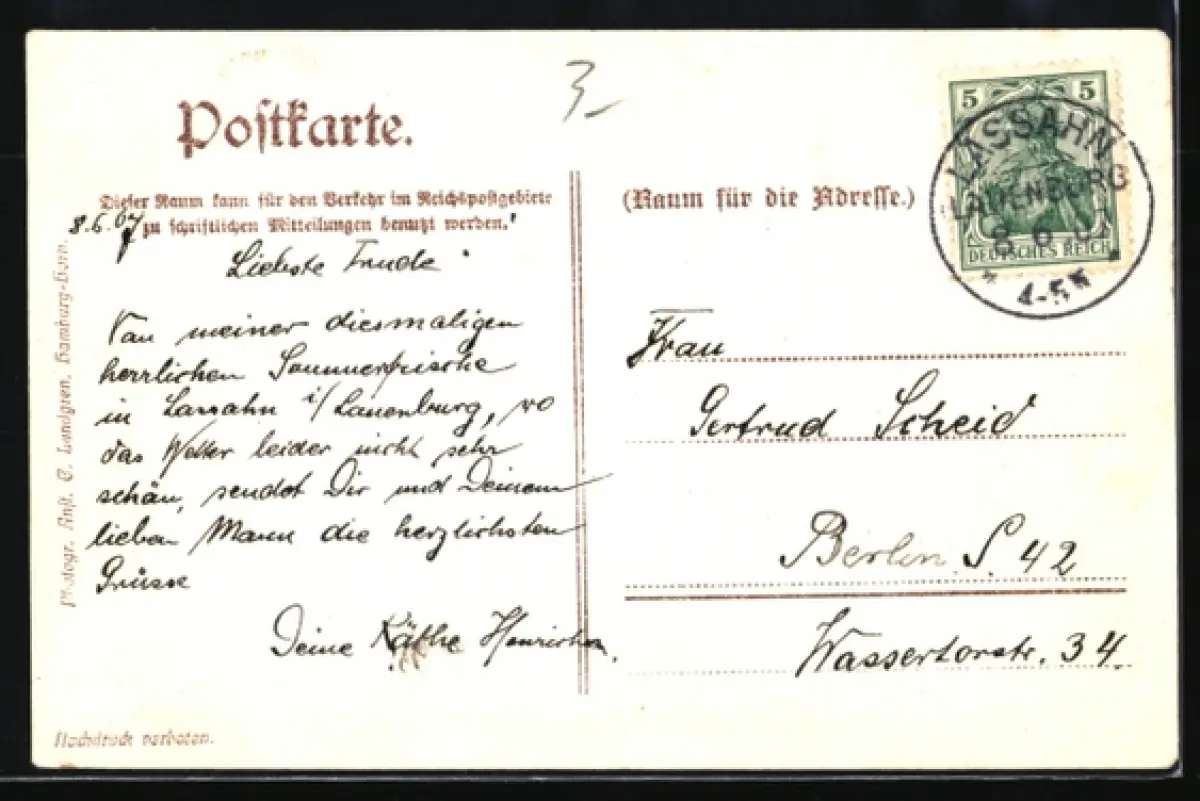 Postkarte.
3_
Dieser Raum kann für den Verkehr im Reichspostgebiete
zu schriftlichen Mitteilungen benutzt werden.
8.6.07
Liebste Trude
Von meiner diesmaligen
herrlichen Sommerfrische
in Lassahn i/Lauenburg, wo
das Wetter leider nicht sehr
schön, sendet Dir und Deinem
lieben Mann die herzlichsten
Grüsse
Deine Käthe
Photogr. Anst. C. Landgren, Hamburg-Horn.
Nachdruck verboten.
(Raum für die Adresse.)
5 5
DEUTSCHES REICH
LASSAHN
LAUENBURG
8 6 07
4-5N
Frau
Gertrud Scheid
Berlin S. 42
Wassertorstr. 34.